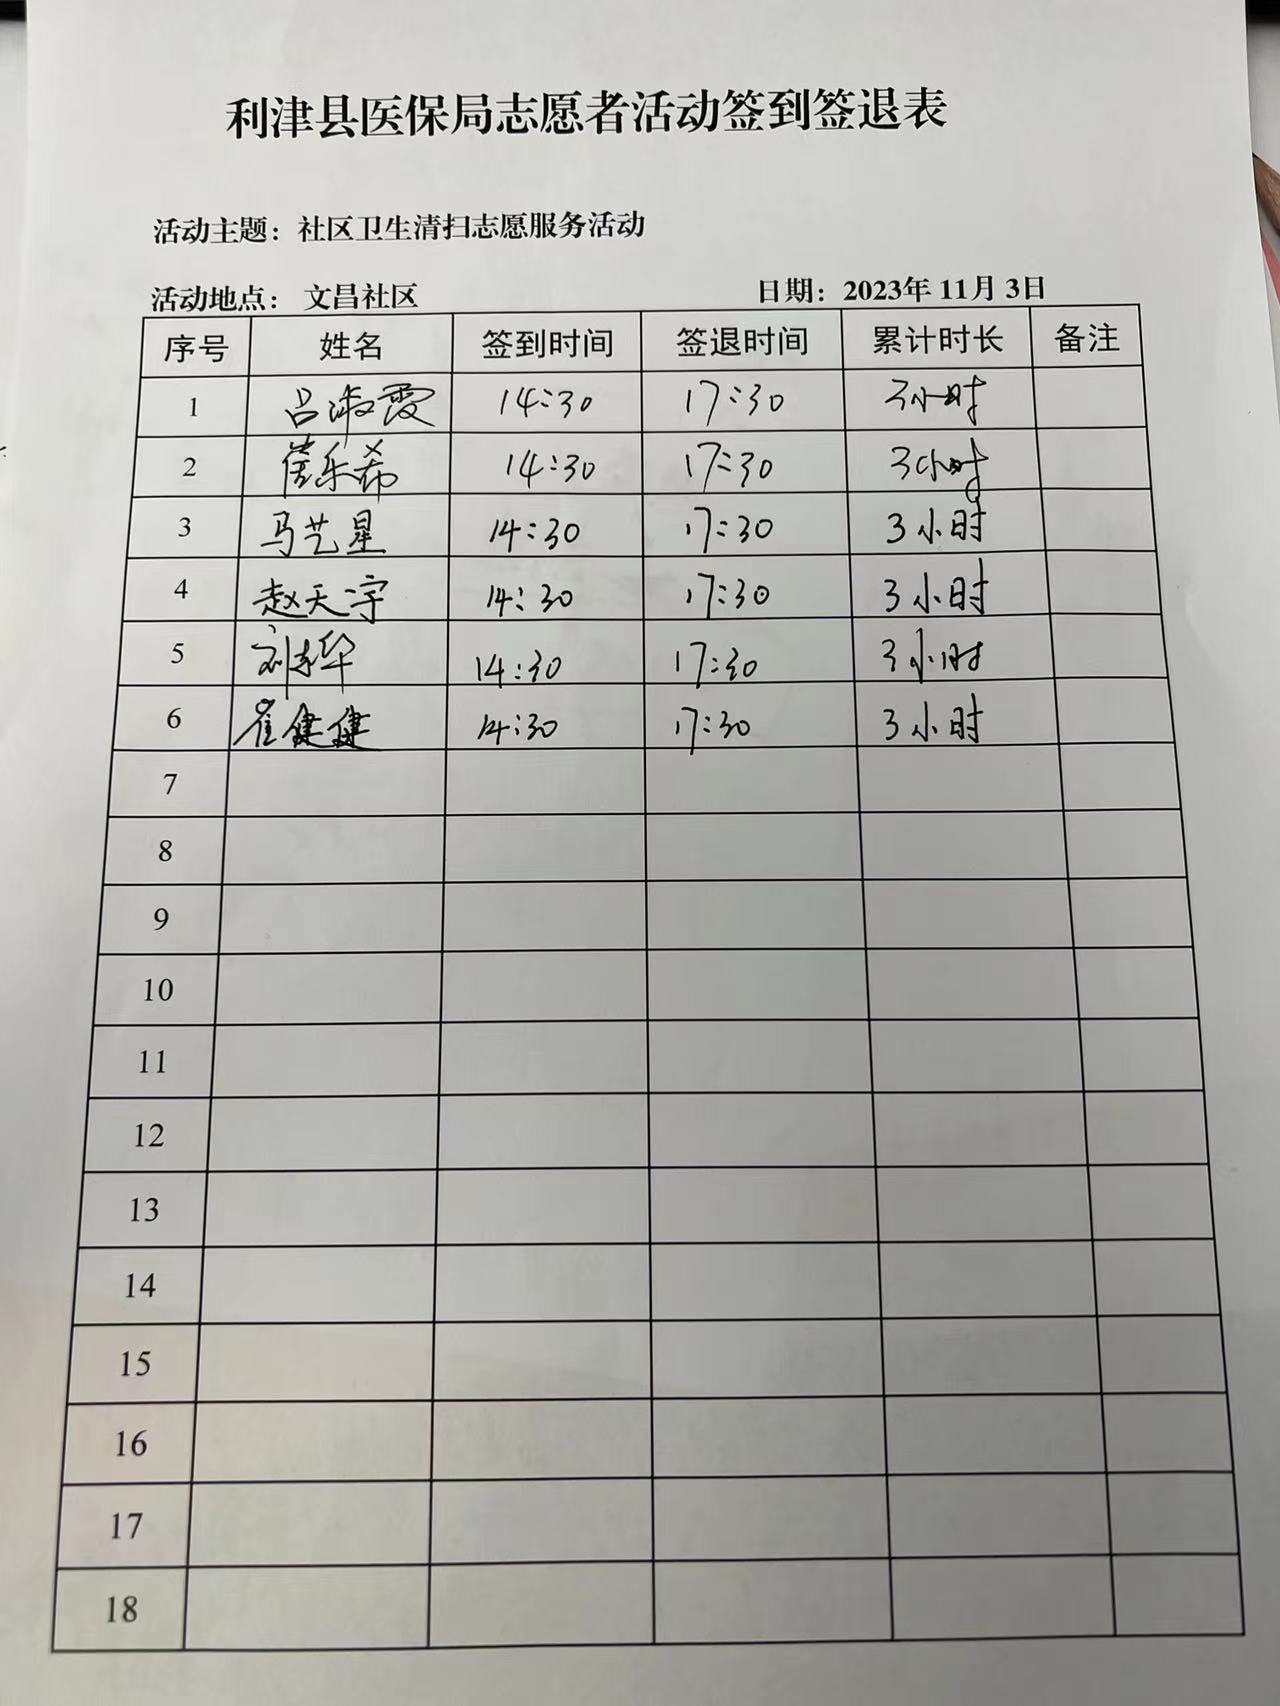 利津县医保局志愿者活动签到签退表
活动主题：社区卫生清扫志愿服务活动
活动地点： 文昌社区 日期：2023年 11月 3日
序号 姓名 签到时间 签退时间 累计时长 备注
1 吕淑霞 14:30 17:30 3小时
2 崔乐希 14:30 17:30 3小时
3 马艺星 14:30 17:30 3小时
4 赵天宇 14:30 17:30 3小时
5 14:30 17:30 3小时
6 崔健健 14:30 17:30 3小时
7
8
9
10
11
12
13
14
15
16
17
18